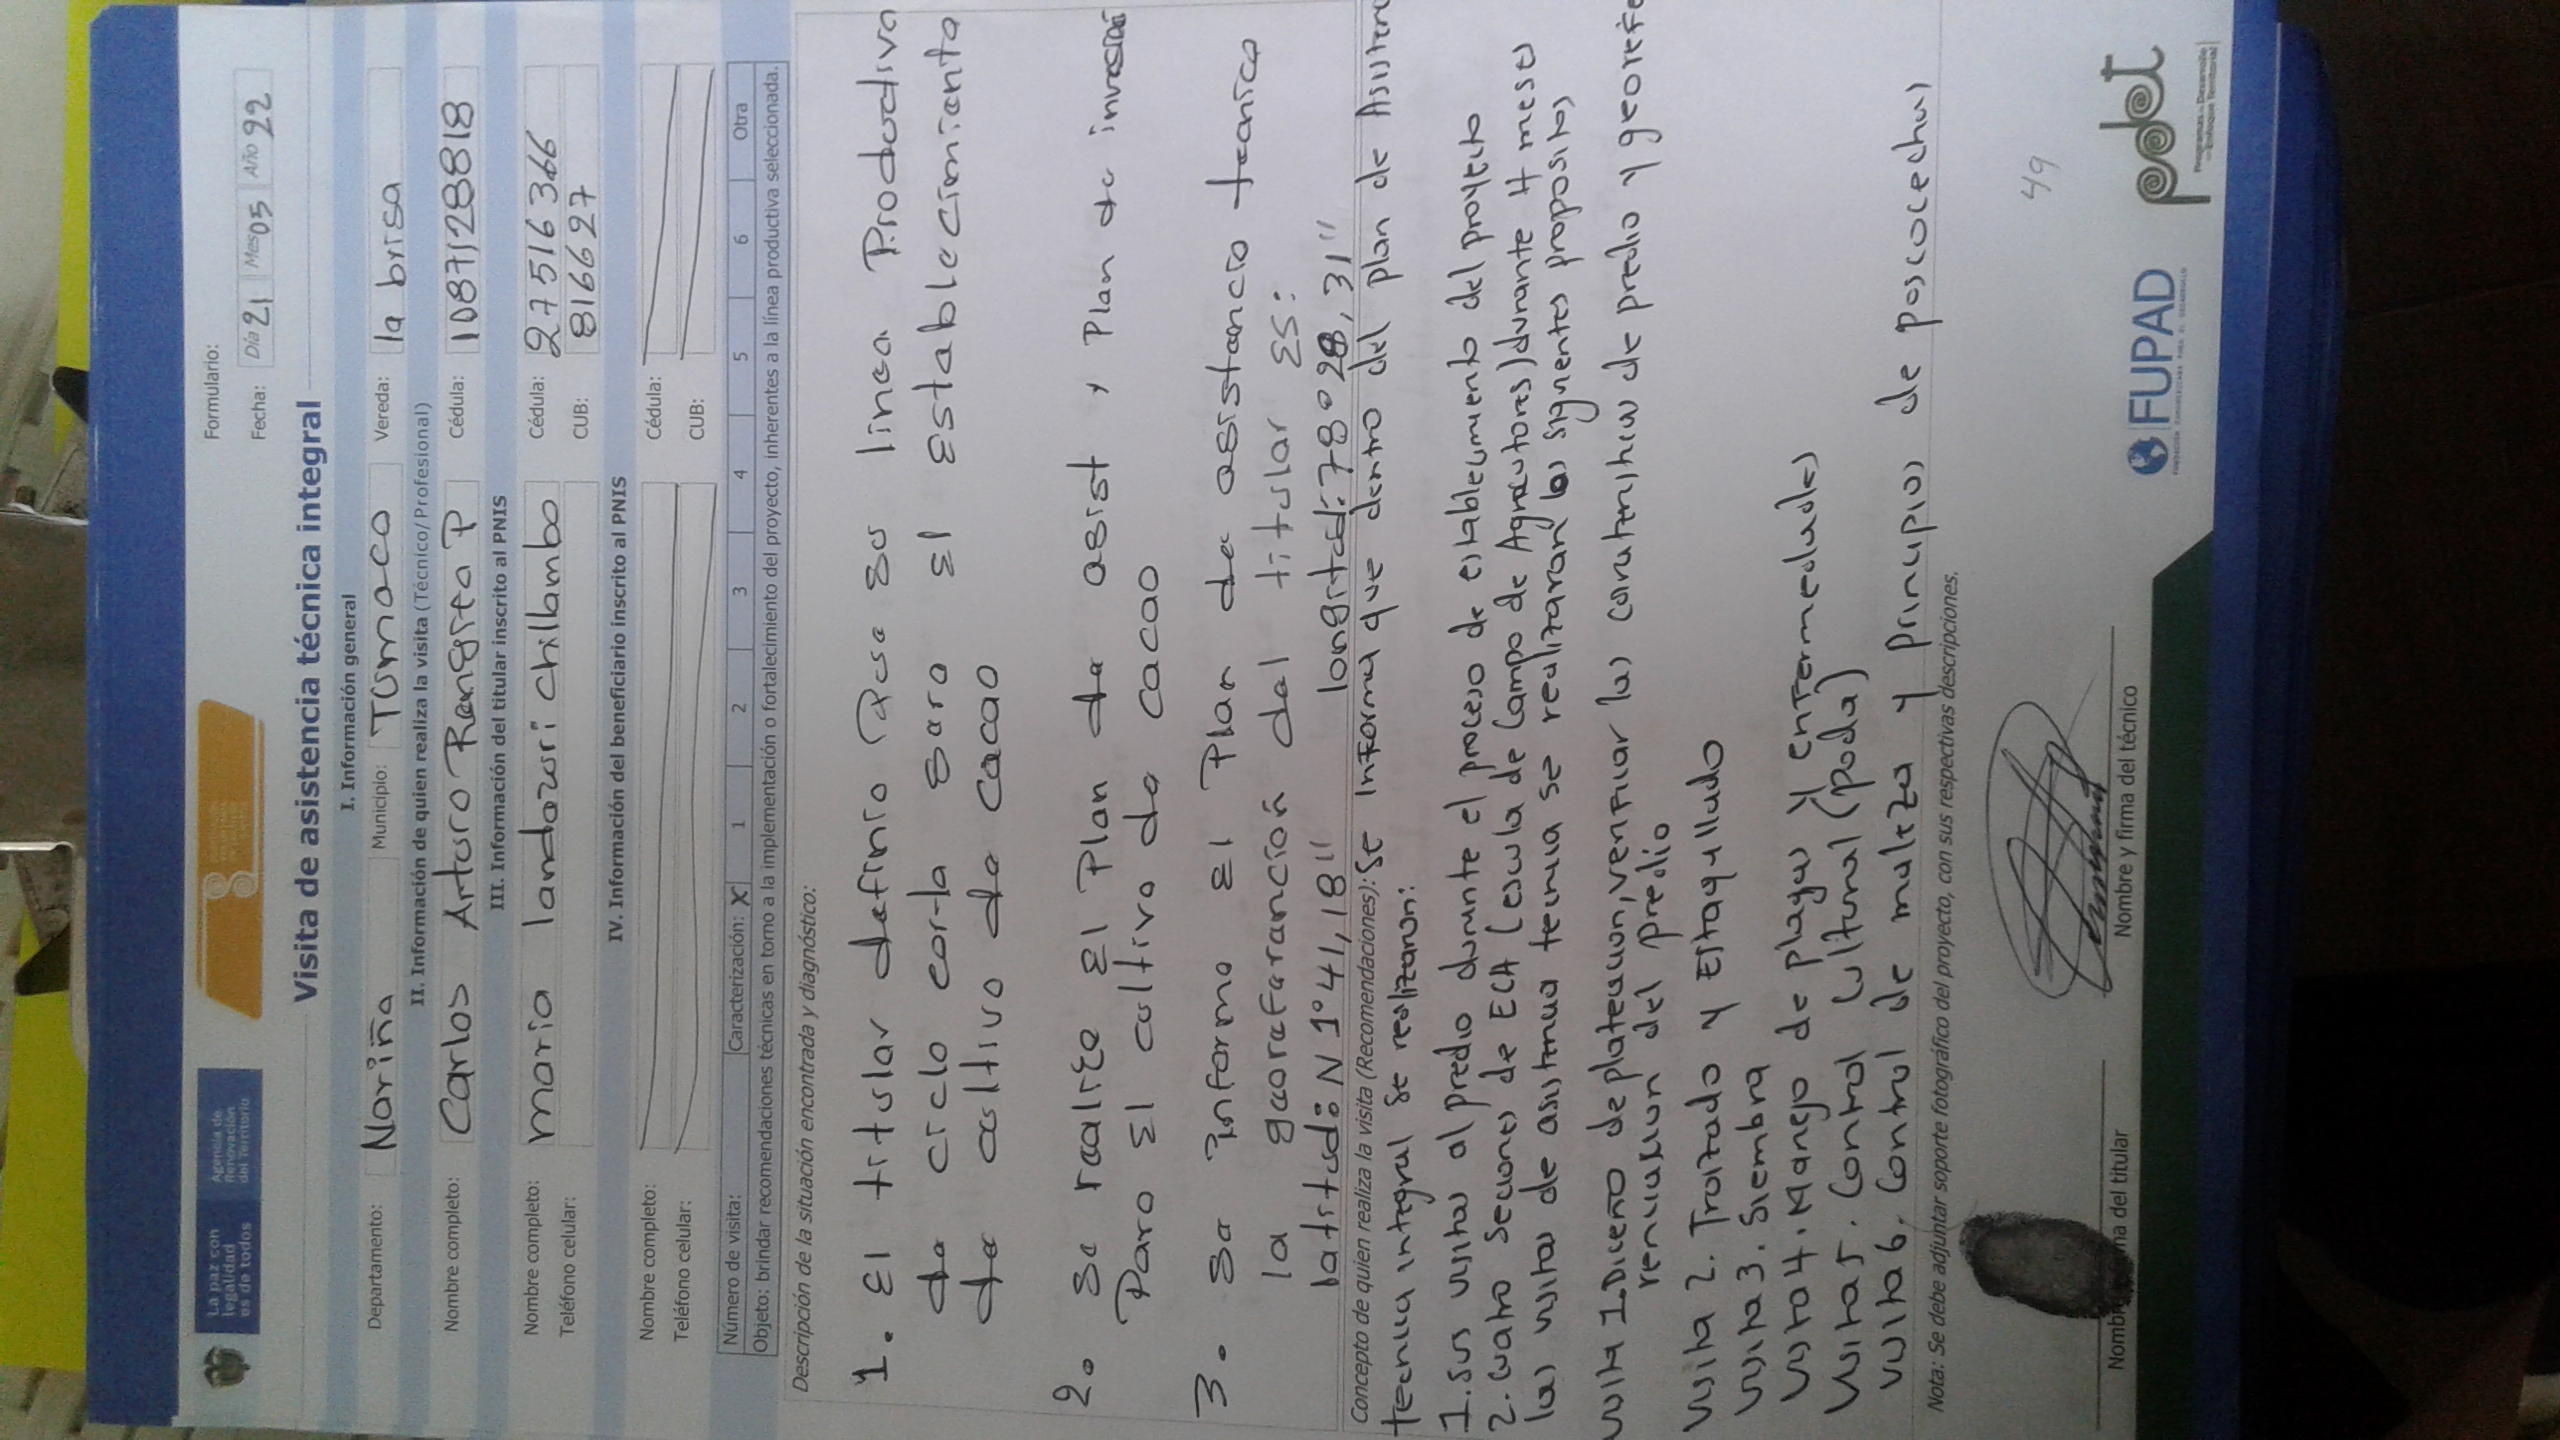 La paz con
legalidad
es de todos
Agencia de
Renovación
del Territorio
Formulario:
Fecha: Día 21 Mes 05 Año 22
Visita de asistencia técnica integral
I. Información general
Departamento: Nariño Municipio: Tumaco Vereda: la brisa
II. Información de quien realiza la visita (Técnico/Profesional)
Nombre completo: Carlos Arturo Rengifo P Cédula: 1087128818
III. Información del titular inscrito al PNIS
Nombre completo: maria landazuri chillambo Cédula: 27516366
Teléfono celular: CUB: 816627
IV. Información del beneficiario inscrito al PNIS
Nombre completo: Cédula:
Teléfono celular: CUB:
Número de visita: Caracterización: X 1 2 3 4 5 6 Otra
Objeto: brindar recomendaciones técnicas en torno a la implementación o fortalecimiento del proyecto, inherentes a la línea productiva seleccionada.
Descripción de la situación encontrada y diagnóstico:
1. El titular definio Que su linea Productiva
de ciclo corto sara El Establecimiento
de cultivo de cacao
2. Se realizo El Plan de asist y Plan de inversión
Para El cultivo de cacao
3. Se Informo El Plan de asistencia tecnica
la georeferanción del titular ES:
latitud: N 1°41,18" longitud: 78°028,31"
Concepto de quien realiza la visita (Recomendaciones): Se informa que dentro del plan de Asisten
tecnica integral se realizaran:
1. Sus visitas al predio durante el proceso de establecimiento del proyecto
2. Cuatro Secciones de ECA (escuela de Campo de Agricultores) durante 4 meses
las visitas de asistencia tecnica se realizaran los siguientes propositos
visita 1. Diceño de plateacion, verificar las caracteristicas de predio y georefe
renciacion del predio
Visita 2. Trazado y Estaquillado
Visita 3. Siembra
Visita 4. Manejo de plagas y enfermedades
Visita 5. Control Cultural (poda)
Visita 6. Control de maleza y principios de poscocechas
Nota: Se debe adjuntar soporte fotográfico del proyecto, con sus respectivas descripciones.
49
Nombre y firma del técnico
del titular
FUPAD
pdet
Programas de Desarrollo
con Enfoque Territorial